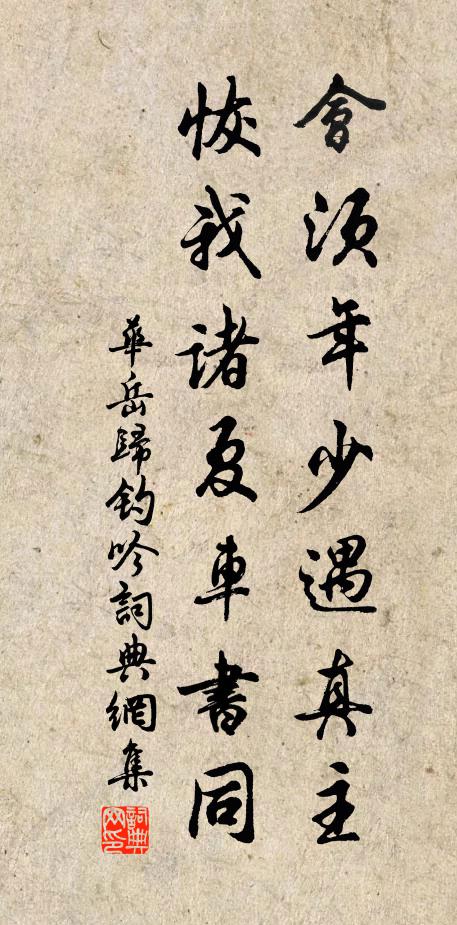 會須年少遇真主
恢我諸夏車書同
華岳歸釣吟詞典網集
詞典網印